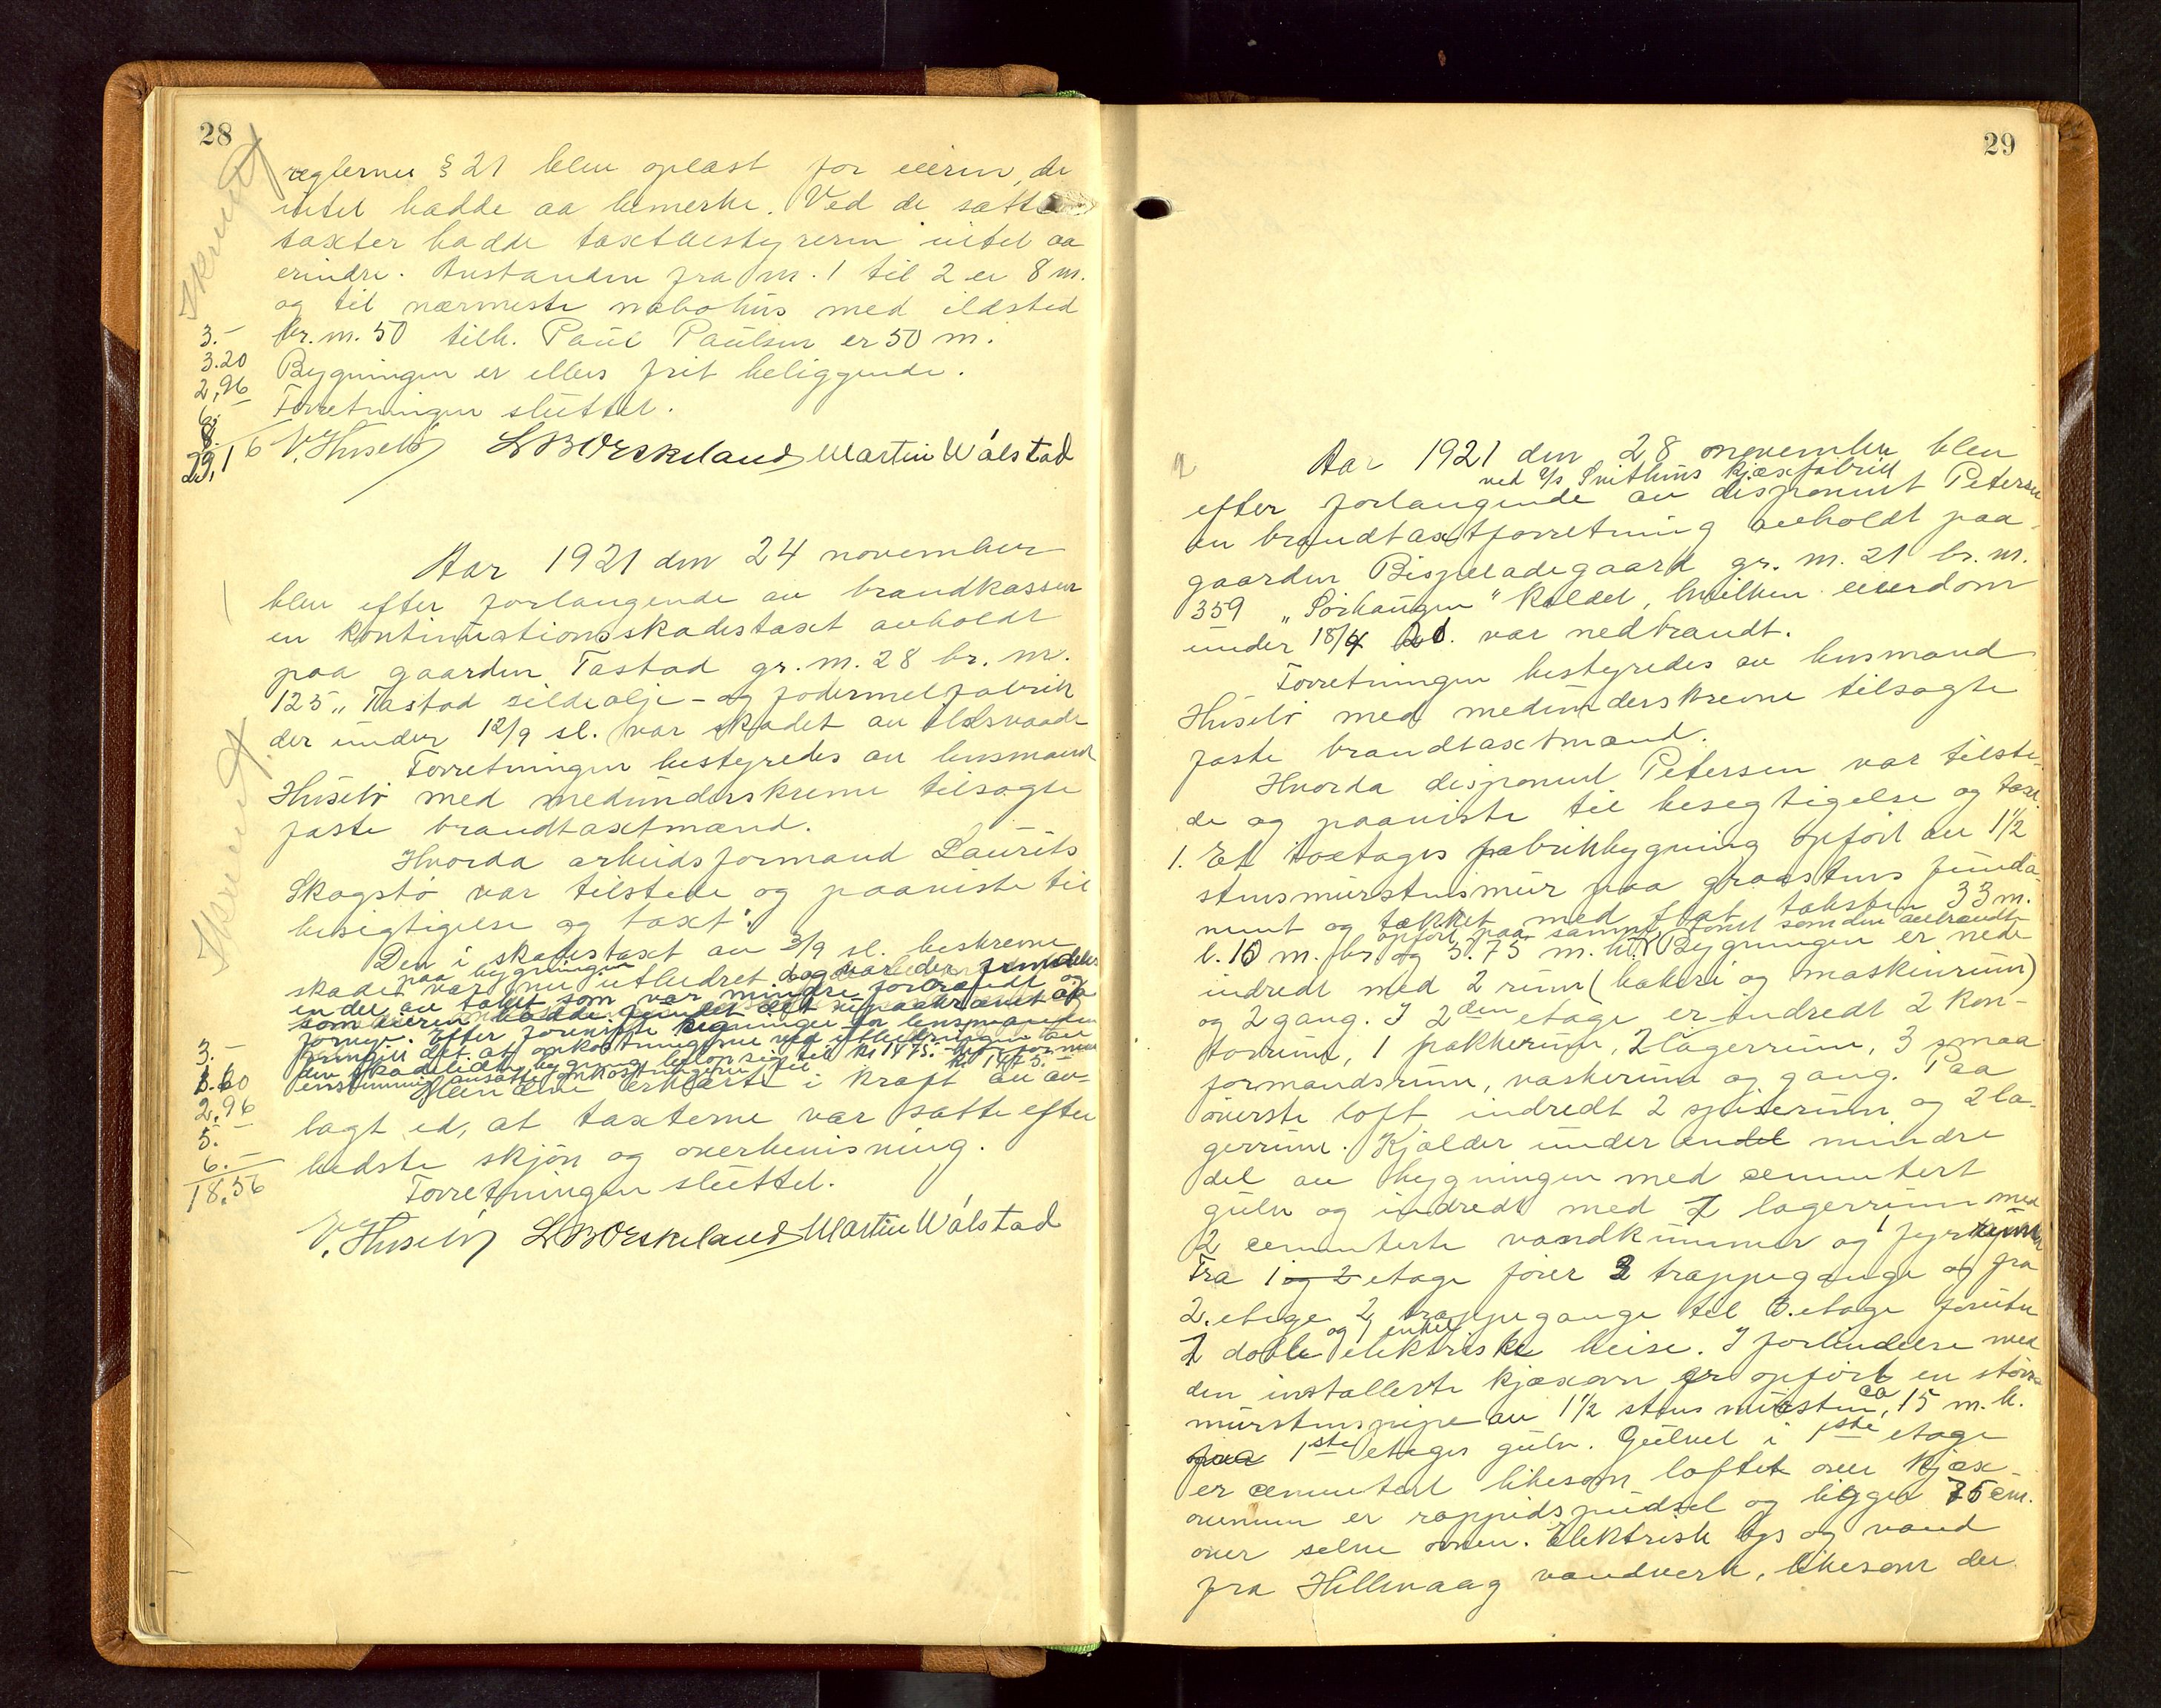 28
Skrevet
reglernes § 21 blev oplæst for eieren, der
intet hadde aa bemerke. Ved de satte
taxter hadde taxtbestyreren intet aa
erindre. Avstanden fra nr. 1 til 2 er 8 m.
og til nærmeste nabohus med ildsted
br. nr. 50 tilh. Paul Paulsen er 50 m.
Bygningen er ellers frit beliggende.
Forretningen sluttet.
3.-
3.20
2,96
6.-
8.
23,16
V. Huselö L BØrskeland Martin Wålstad
Aar 1921 den 24 november
blev efter forlangende av brandkassen
en kontinuationsskadestaxt avholdt
paa gaarden Tastad gr. nr. 28 br. nr.
125 „Tastad sildeolje- og fodermelfabrik
der under 12/9 sl. var skadet av ildsvaade
Forretningen bestyredes av lensmand
Huselö med medunderskrevne tilsagte
faste brandtaxtmænd.
Skrevet
Hvorda arbeidsformand Laurits
Skogstö var tilstede og paaviste til
besigtigelse og taxt:
Den i skadestaxt av 3/9 sl. beskrevne
skade paa bygningen var nu utbedret dog var der fremdeles
en del av taket som var mindre forbrændt og
som eieren hadde fundet
fornye. Efter foreviste regninger for lensmanden
fremgik det at omkostningerne ved utbedringen av
den skadelidte bygning beløp sig til kr 1475.-
enstemmig ansatte omkostningerne til kr 1475.-
Mændene erklærte i kraft av av-
lagt ed, at taxterne var satte efter
bedste skjön og overbevisning.
Forretningen sluttet.
3.-
1.60
2.96
5.-
6.-
18,56
V. Huselö L B Ørskeland Martin Wålstad
29
Aar 1921 den 28 november blev
efter forlangende av disponent Petersen
ved A/S Svithuns kjæxfabrik
en brandtaxtforretning avholdt paa
gaarden Bispeladegaard gr. nr. 21 br. nr.
359 „Sörhaugen" kaldet, hvilken eiendom
under 18/4 d.å. var nedbrandt.
Forretningen bestyredes av lensmand
Huselö med medunderskrevne tilsagte
faste brandtaxtmænd.
Hvorda disponent Petersen var tilste-
de og paaviste til besegtigelse og taxt.
1. Et toetages fabrikbygning opfört av 1½
stensmurstensmur paa graastens funda-
ment og tækket med flat taksten 33 m.
l. 10 m. br. og 5.75 m. h. opfört paa samme tomt som den avbrændte Bygningen er nede
indredt med 2 rum (bakeri og maskinrum)
og 2 gang. I 2den etage er indredt 2 kon-
torrum, 1 pakkerum, 2 lagerrum, 3 smaa
formandsrum, vaskerum og gang. Paa
överste loft indredt 2 spiserum og 2 la-
gerrum. Kjælder under endel mindre
del av bygningen med cementert
gulv og indredt med 1 lagerrum med
2 cementerte vandkummer og 1 fyrrum
Fra 1 og 2 etage förer 3 trappegange og fra
2. etage 2 trappegange til 3. etage foruten
1 doble og 1 enkel elektriske heise. I forbindelse med
den installerte kjæxovn er opfört en större
murstenspipe av 1½ stens mursten, ca 15 m. h.
fra 1ste etages gulv. Gulvet i 1ste etage
er cementert likesom loftet over kjæx-
ovnen er rappidspudset og ligger 75 cm.
over selve ovnen. Elektrisk lys og vand
fra Hillevaag vandverk, likesom der